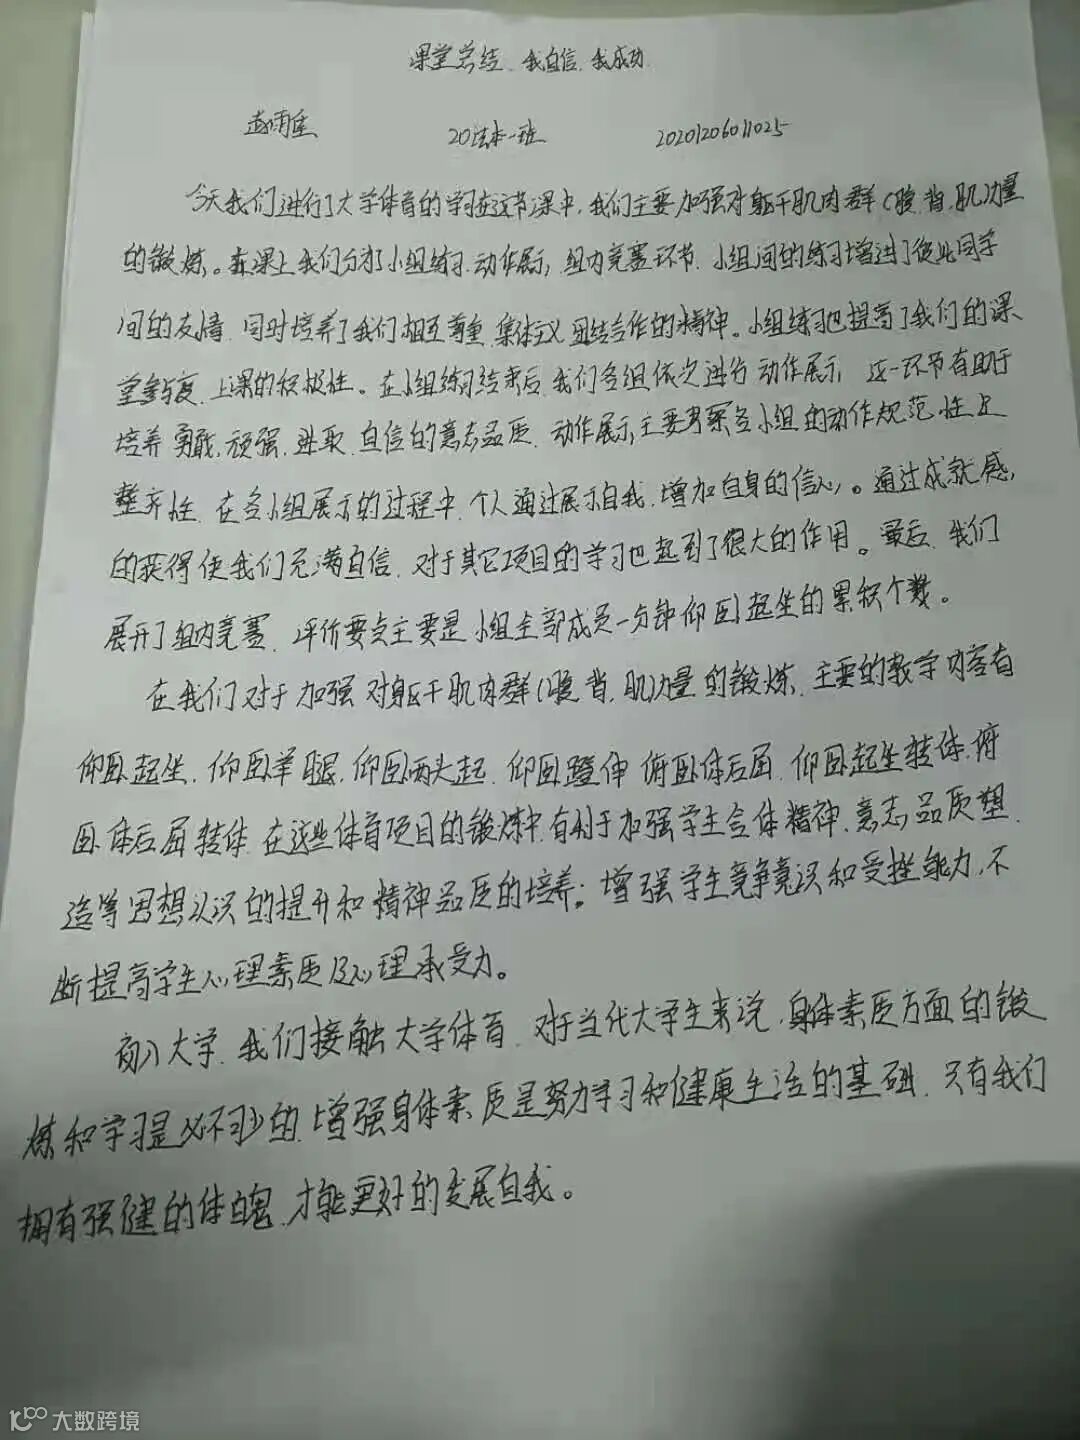 课堂总结、我自信、我成功
雨佳 20法本一班 20201206011025
今天我们进行了大学体育的学习在这节课中,我们主要加强对躯干肌肉群(腹、背、肌)力量
的锻炼。在课上我们分为小组练习、动作展示、组内竞赛环节、小组间的练习增进了彼此同学
间的友情、同时培养了我们相互尊重、集体主义、团结合作的精神。小组练习也提高了我们的课
堂参与度、上课的积极性。在小组练习结束后,我们各组依次进行动作展示,这一环节有助于
培养勇敢、顽强、进取、自信的意志品质、动作展示主要考察各小组的动作规范性及
整齐性、在各小组展示的过程中、个人通过展示自我、增加自身的信心。通过成就感
的获得使我们充满自信、对于其它项目的学习也起到了很大的作用。最后、我们
展开了组内竞赛、评价要点主要是小组全部成员一分钟仰卧起坐的累积个数。
在我们对于加强对躯干肌肉群(腹、背、肌)力量的锻炼、主要的教学内容有
仰卧起坐、仰卧举腿、仰卧两头起、仰卧蹬伸、俯卧体后屈、仰卧起坐转体、俯
卧体后屈转体、在这些体育项目的锻炼中、有利于加强学生合体精神、意志品质塑
造等思想认识的提升和精神品质的培养;增强学生竞争意识和受挫能力、不
断提高学生心理素质及心理承受力。
初入大学、我们接触大学体育、对于当代大学生来说、身体素质方面的锻
炼和学习是必不可少的、增强身体素质是努力学习和健康生活的基础、只有我们
拥有强健的体魄、才能更好的发展自我。
大数跨境